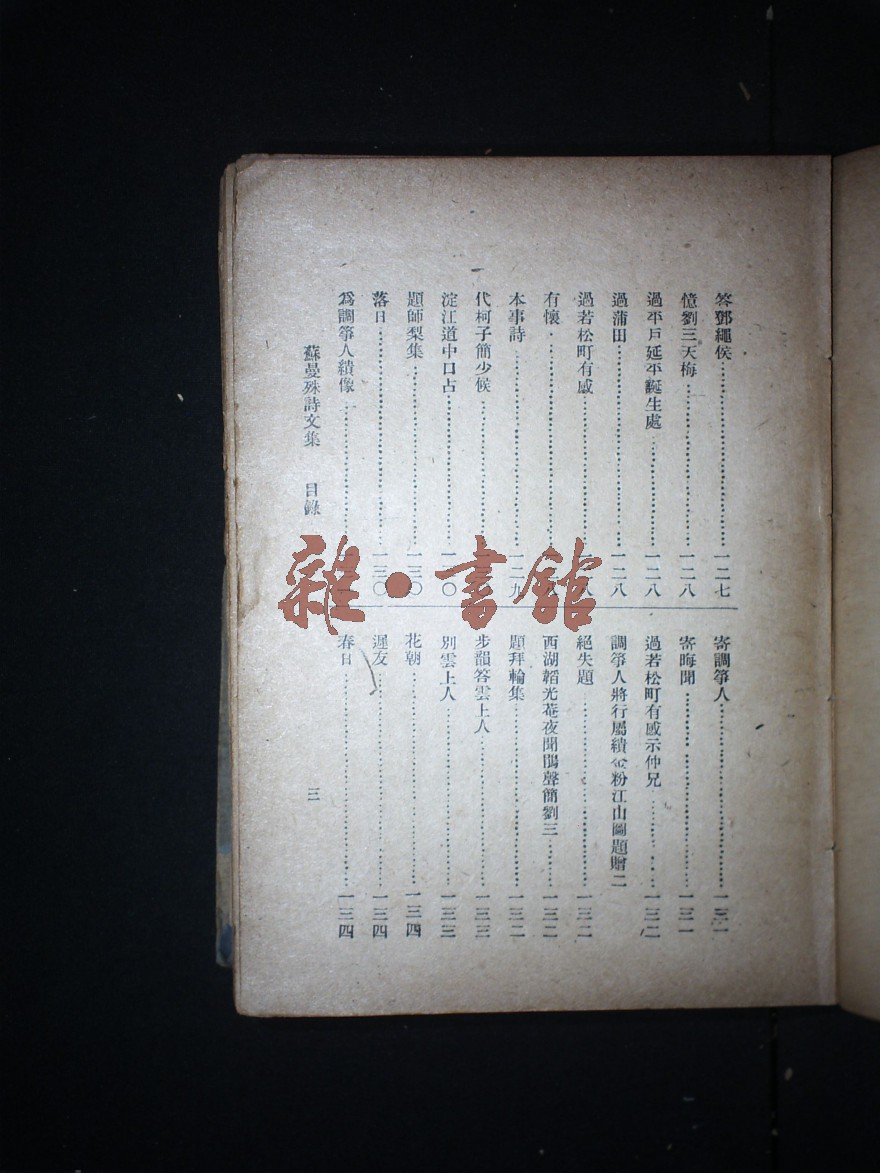 答鄧繩侯……一二七
憶劉三天梅……一二八
過平戶延平誕生處……一二八
過蒲田……一二八
過若松町有感……八
有懷……
本事詩……一二九
代柯子簡少候……
淀江道中口占……一〇
題師梨集……一三〇
落日……一三〇
為調箏人繢像……
寄調箏人……一三一
寄晦聞……一三一
過若松町有感示仲兄……一三二
調箏人將行屬繢金粉江山圖題贈二
絕失題……一三二
西湖韜光菴夜聞鵑聲簡劉三……一三二
題拜輪集……一三二
步韻答雲上人……一三三
別雲上人……一三三
花朝……一三四
遲友……一三四
春日……一三四
蘇曼殊詩文集 目錄 三
雜·書館